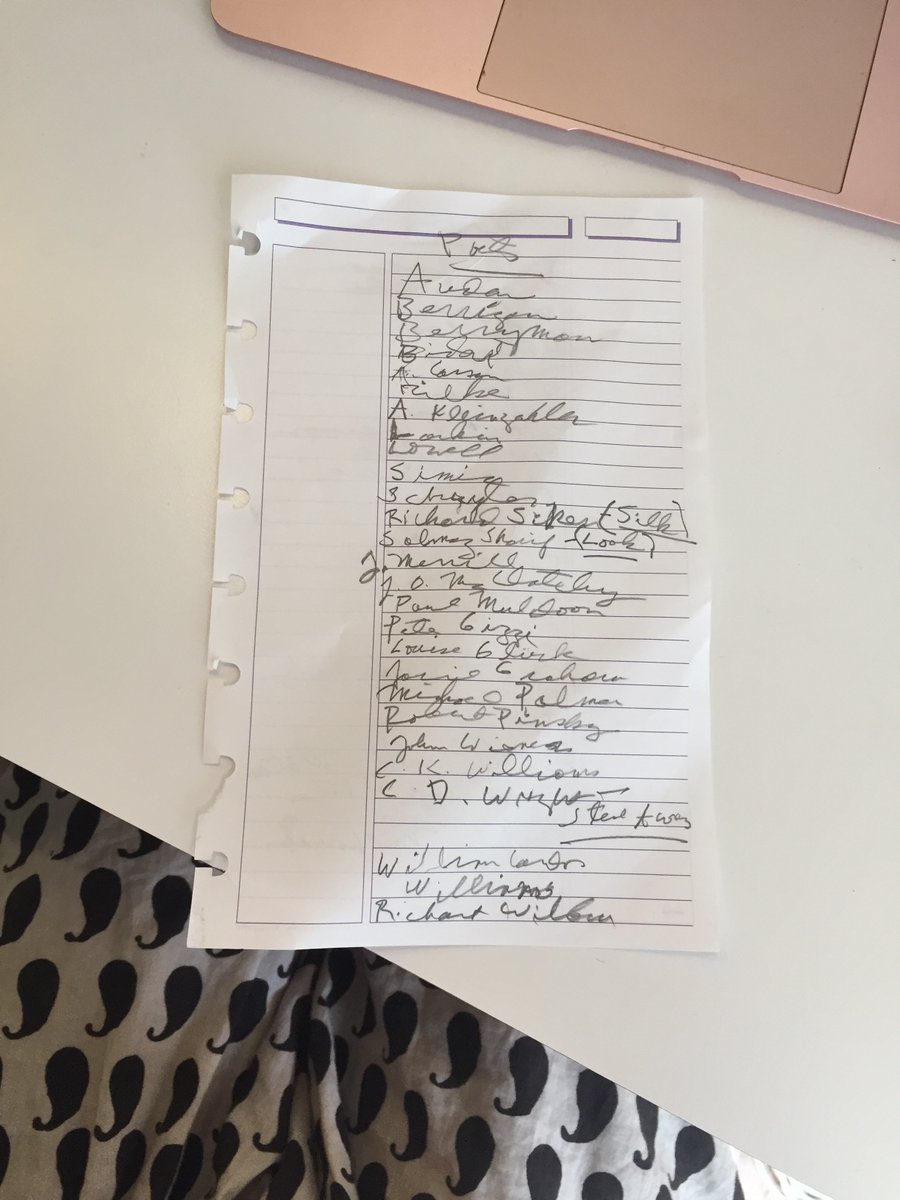 Poets
Auden
Berrigan
Berryman
Bidart
A. Carson
Rilke
A. Kleinzahler
Larkin
Lowell
Simic
Schuyler
Richard Siken (Silk)
Solmaz Sharif - (Look)
J. Merrill
J. D. McClatchy
Paul Muldoon
Peter Gizzi
Louise Glück
Jorie Graham
Michael Palmer
Robert Pinsky
John Wieners
C. K. Williams
C. D. Wright -
Steal Away
William Carlos
Williams
Richard Wilbur